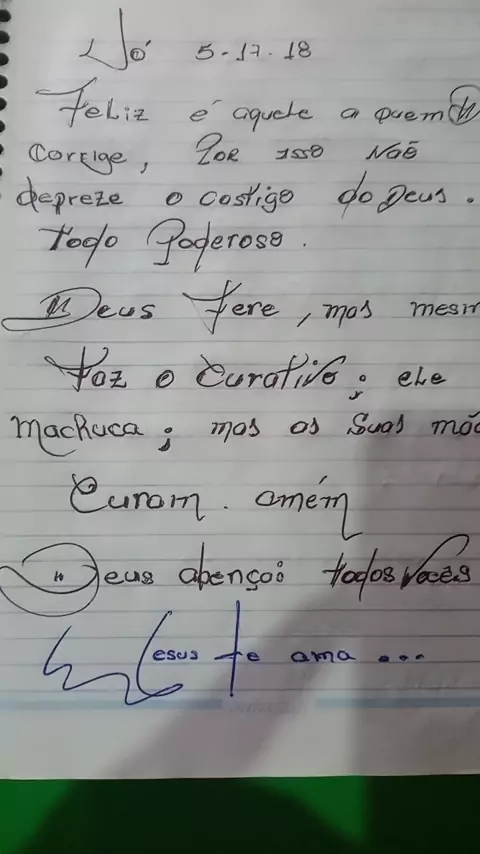 Jó 5-17.18
Feliz é aquele a quem
corrige, Por isso Não
depreze o castigo do Deus.
Todo Poderoso.
Deus Fere, mas mesm
Faz o curativo; ele
machuca; mas as suas mão
curam. amém
Deus abençoi todos vocês
Jesus te ama...